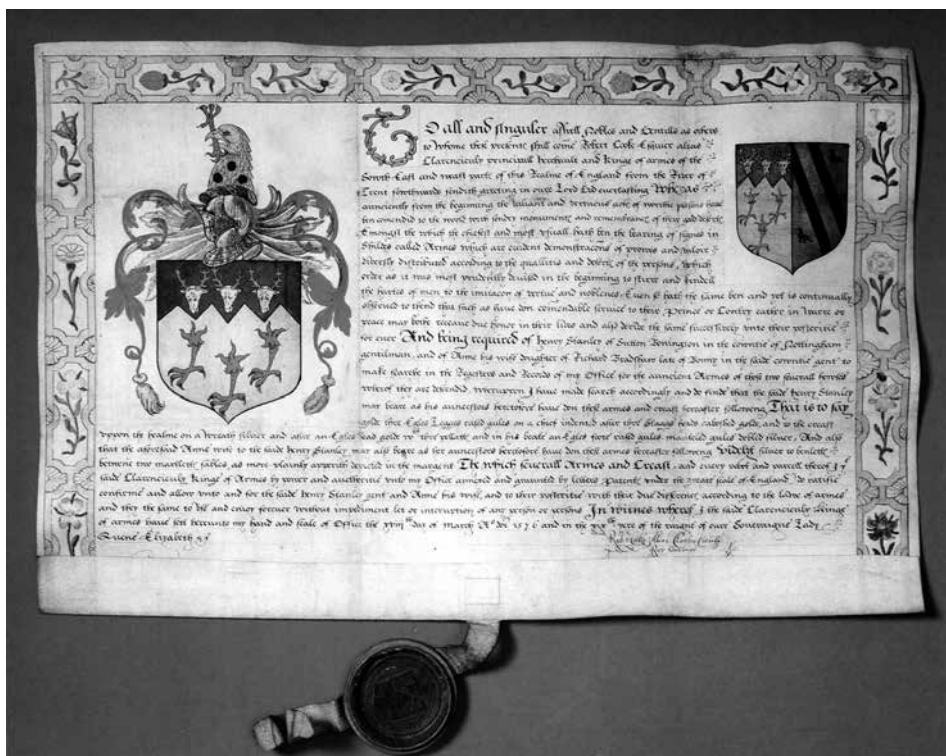 To all and singuler aswell Nobles and Gentills as others
to whome thes presents shall come Robert Cook Esquier alias
Clarencieulx principall herehault and Kinge of armes of the
Sowth East and west parts of this Realme of England from the River of
Trent sowthwards sendith greeting in oure Lord God everlasting Wheras
aunciently from the beginning the valiant and vertuous acts of worthie persons have
ben comendid to the world with sondry monuments and remembrances of their good deserts
Emongst the which the chiefest and most usuall hath ben the bearing of signes in
Shilds called Armes which are evident demonstracions of prowes and valoir
diversly distributed according to the quallities and deserts of the persons which
order as it was most prudently devised in the beginning to stirre and kindell
the harts of men to the imitacion of vertue and noblenes Even so hath the same ben and yet is continually
observed to thend that such as have don comendable service to their Prince or Contrey either in warre or
peace may bothe receave due honor in their lives and also derive the same successively unto their posteritie
for ever And being required of Henry Stanley of Sutton Bonington in the countie of Nottingham
gentilman, and of Anne his wife daughter of Richard Bradshaw late of in the saide countie gent to
make searche in the Registers and Records of my Office for the auncient Armes of those two severall howses
wherof they are descendid, wheruppon I have made search accordingly and do finde that the saide Henry Stanley
may beare as his auncestors heretofore have don thes armes and creast hereafter following That is to say
golde thre Egles Legges rased gules on a chief indented asure thre Staggs heads caboshed golde, and to the creast
uppon the healme on a wreath silver and asure an Egles head golde pellatts and in his beake an Egles foote rased gules mantelid gules dobled silver, And also
that the aforesaid Anne wife to the saide Henry Stanley may also beare as her auncestors heretofore have don thes armes hereafter following Videlit silver to bendletts
betwene two martletts sables as more plainly apperith depicted in the margent The which severall Armes and Creast, and every part and parcell therof I the
saide Clarencieulx Kinge of Armes by power and aucthoritie unto my Office annexed and graunted by letters Patents under the great seale of England, do ratifie
confirme and allow unto and for the saide Henry Stanley gent and Anne his wife, and to their posteritie with their due differences according to the lawe of armes
and they the same to use and enioy forever without impediment let or interuption of any person or persons In witnes wherof I the saide Clarencieulx Kinge
of armes have sett hereunto my hand and seale of Office the day of March Ao dni 1576 and in the yere of the raigne of oure Soveraigne Lady
Quene Elizabeth &c